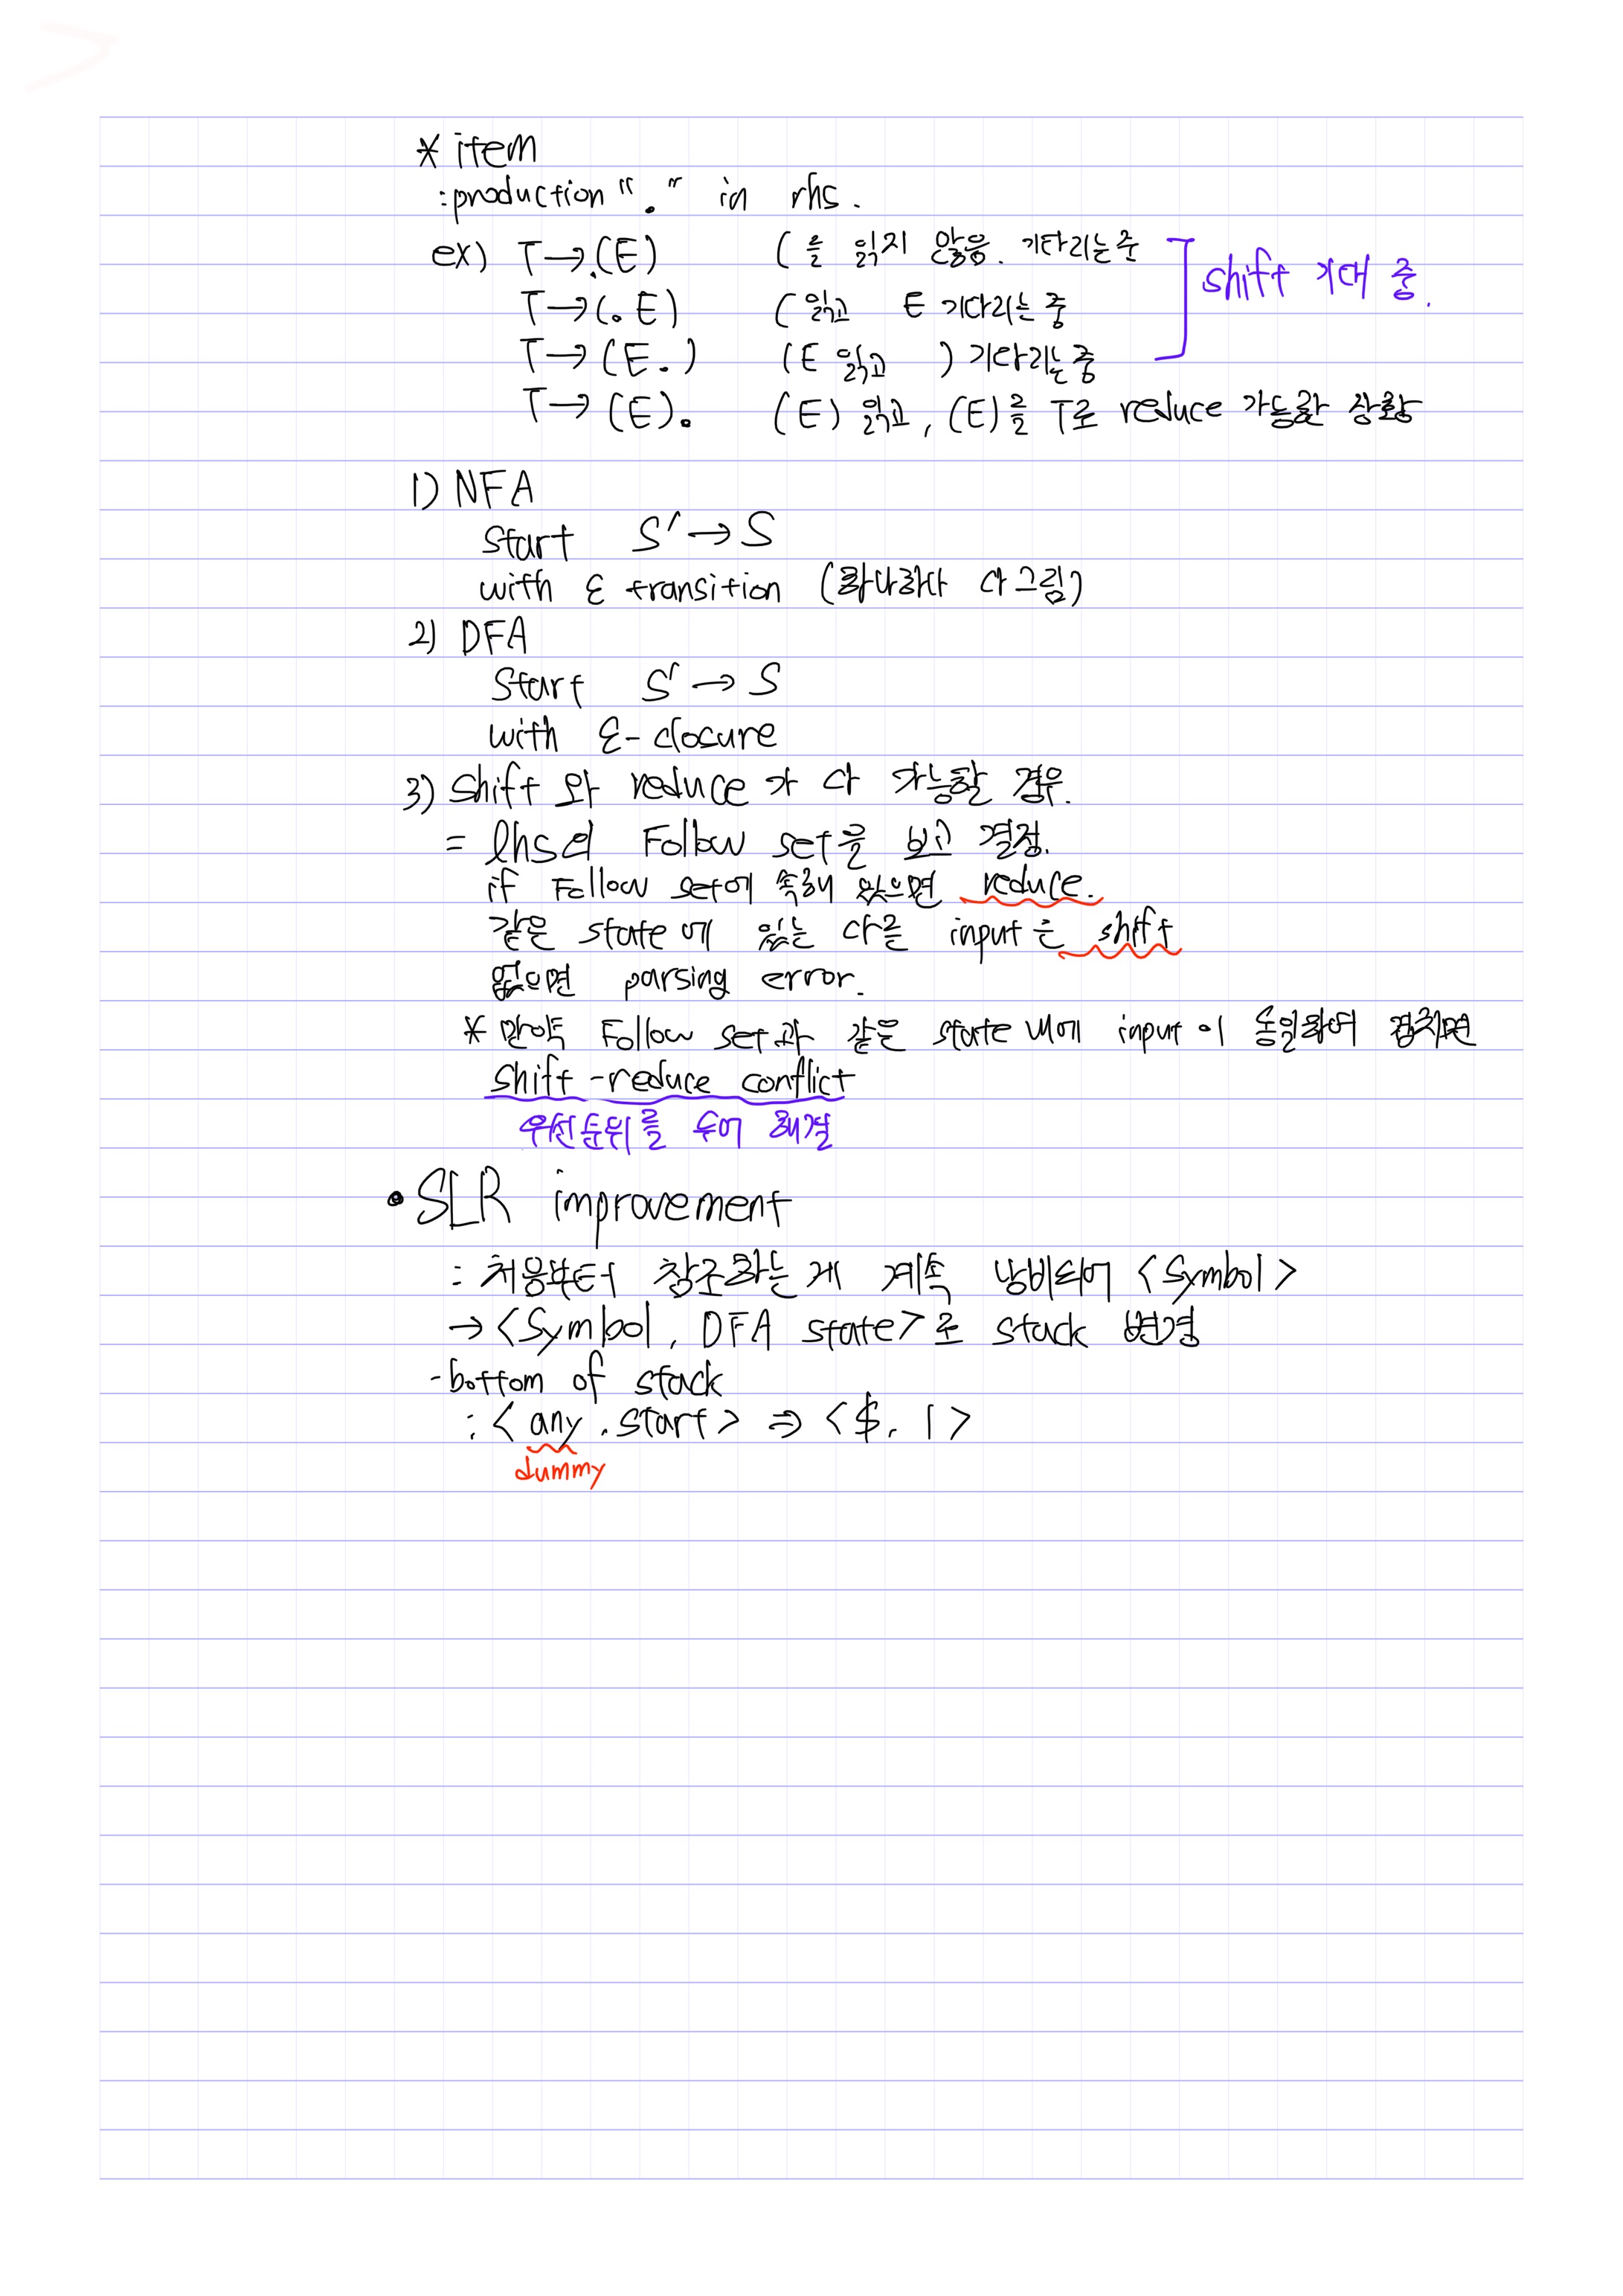 * item
: production "." in rhs.
ex) T→.(E) ( 를 읽지 않음. 기다리는 중
T→(.E) ( 읽고 E 기다리는 중 shift 기대 중.
T→(E.) (E 읽고 ) 기다리는 중
T→(E). (E) 읽고, (E)를 T로 reduce 가능한 상황
1) NFA
Start S'→S
with ε transition (하나하나 다 그림)
2) DFA
Start S'→S
with ε-closure
3) shift 와 reduce 가 다 가능할 경우.
= lhs의 Follow set을 보고 결정.
if Follow set에 속해 있으면 reduce.
같은 state에 있는 다른 input은 shift
없으면 parsing error.
* 만약 Follow set과 같은 state 내에 input이 동일하여 겹치면
shift-reduce conflict
우선순위를 두어 해결
• SLR improvement
: 처음부터 참조하는 게 계속 낭비되어 <Symbol>
→ <Symbol, DFA state>로 stack 변경
- bottom of stack
: < any, start> ⇒ <$, 1>
dummy